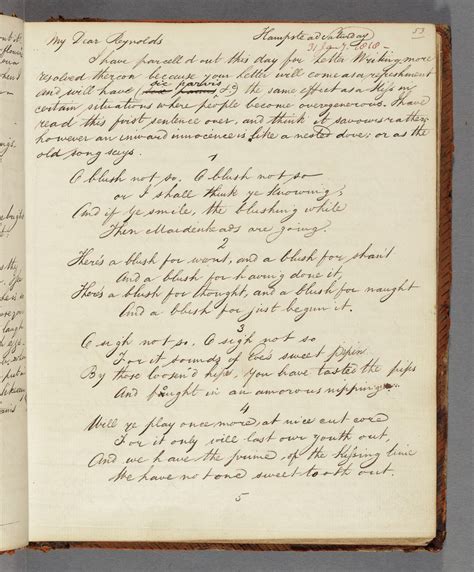 53
Hampstead Saturday
My Dear Reynolds
31 Jany. 1818 -
I have parcell'd out this day for Letter Writing, more
resolved thereon because your Letter will come as a refreshment
and will have sic parvis &c the same effect as a Kiss in
certain situations where people become overgenerous. I have
read this first sentence over, and think it savours rather;
however an inward innocence is like a nested dove; or as the
old song says.
1
O blush not so, O blush not so
or I shall think ye knowing;
And if ye smile, the blushing while
Then Maidenheads are going.
2
There's a blush for want, and a blush for shan't
And a blush for having done it,
There's a blush for thought, and a blush for naught
And a blush for just begun it.
3
O sigh not so, O sigh not so
For it sounds of Eve's sweet pipin
By those loosen'd hips, you have tasted the pips
And fought in an amorous nipping.
4
Will ye play once more, at nice cut core
For it only will last our youth out,
And we have the prime, of the Kissing time
We have not one sweet tooth out.
5